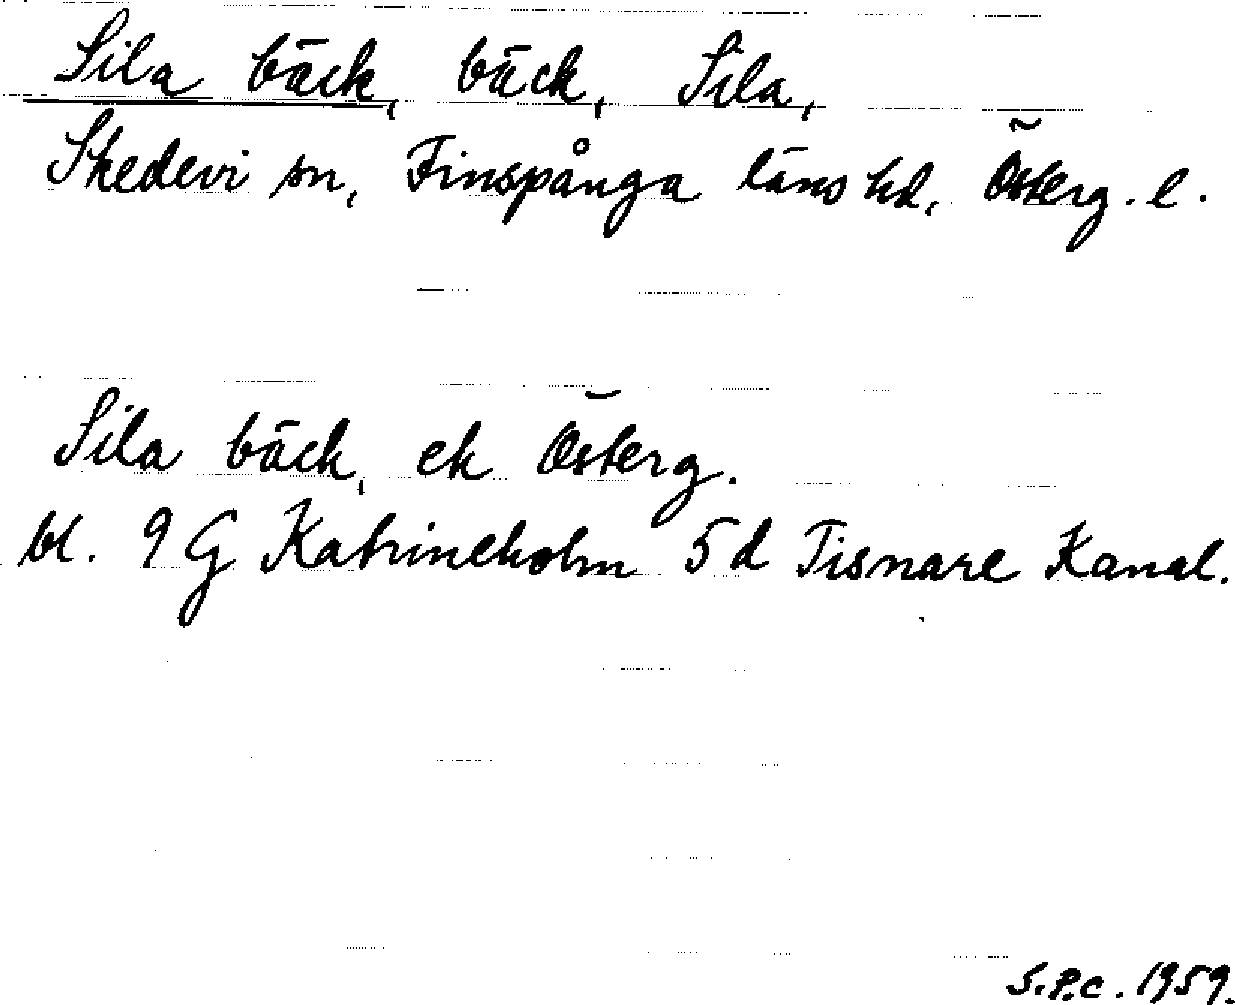 Sila bäck, bäck, Sila,
Skedevi sn, Finspånga läns hd, Österg. l.
Sila bäck, ek Österg.
bl. 9 G Katrineholm 5 d Tisnare Kanal.
S.P.C. 1959.